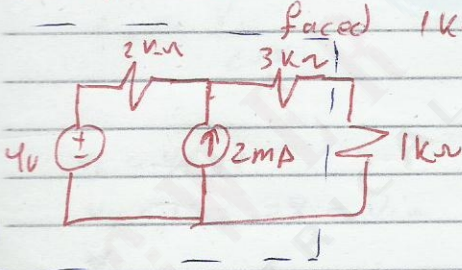 faced 1K
2KΩ 3KΩ
4v 2mA 1KΩ